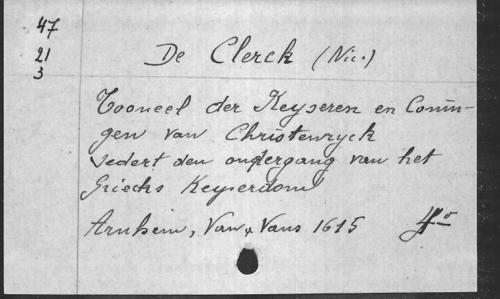 47
21
3
De Clerck (Nic.)
Tooneel der Keyseren en Conin-
gen van Christenryck
sedert den ondergang van het
Griecks Keyserdom
Arnhem, Van 1615 4º